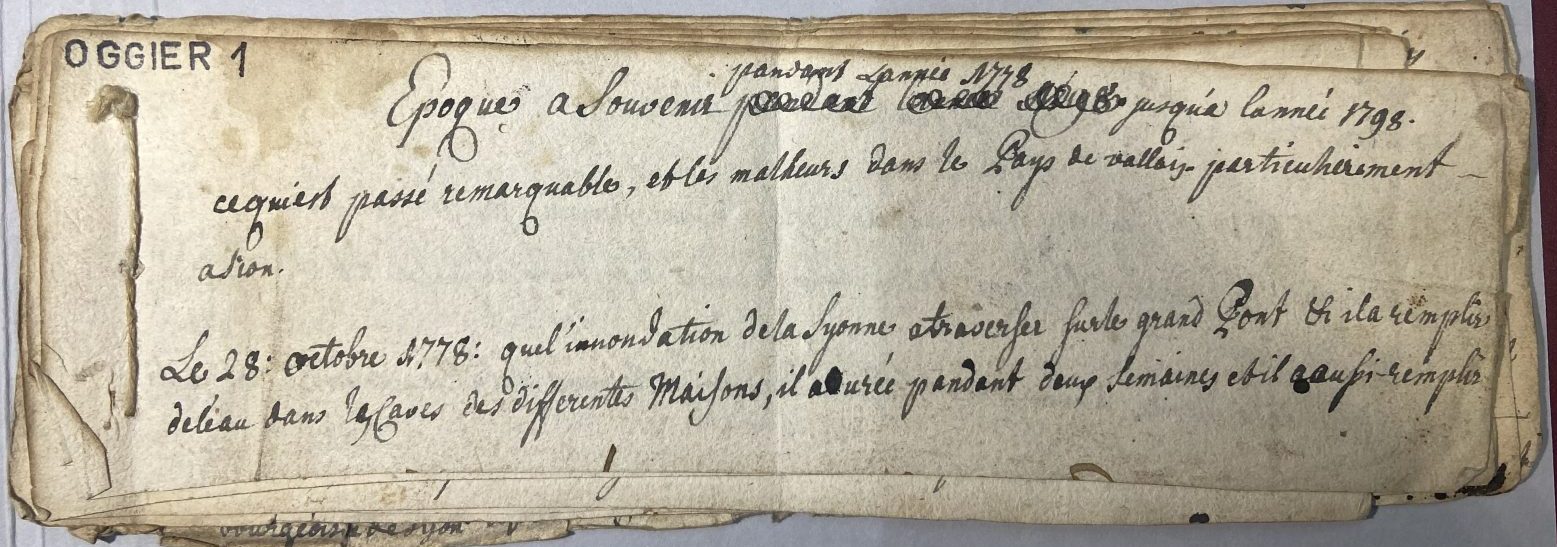 OGGIER 1
pandant Lanneé 1778
Epoque a Souvenir jusqúa lanneé 1798.
cequiest passé remarquable, et les malheurs dans le Pays de vallais particuliérement
a sion.
Le 28: octobre 1778: quel'innondation dela Syonne atraversee surle grand Pont & il a remplir
deleau dans les Caves des differentes Maisons, il a durée pandant deux semaines et il a aussi remplir
bourgeoisie de syon